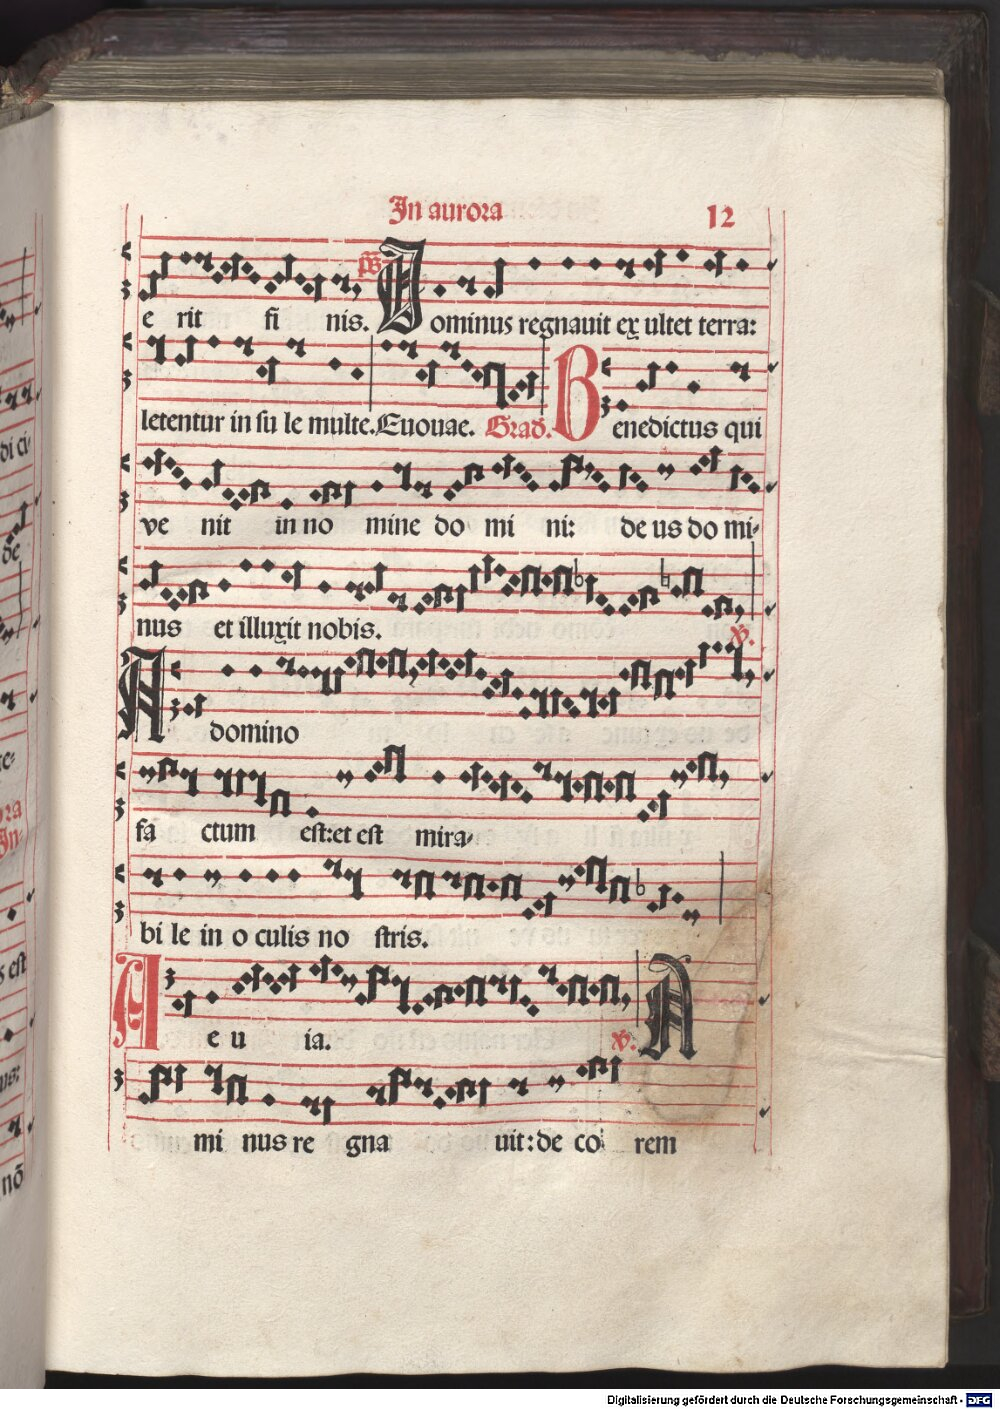 In aurora 12
e rit fi nis. ps Dominus regnauit ex ultet terra:
letentur in su le multe. Euouae. Grad. Benedictus qui
ve nit in no mine do mi ni: de us do mi-
nus et illuxit nobis. V.
A domino
fa ctum est: et est mira-
bi le in o culis no stris.
A e u ia. V.
mi nus re gna uit: de co rem
di ci-
de
ra
In
s est
us:
nō
Digitalisierung gefördert durch die Deutsche Forschungsgemeinschaft - DFG